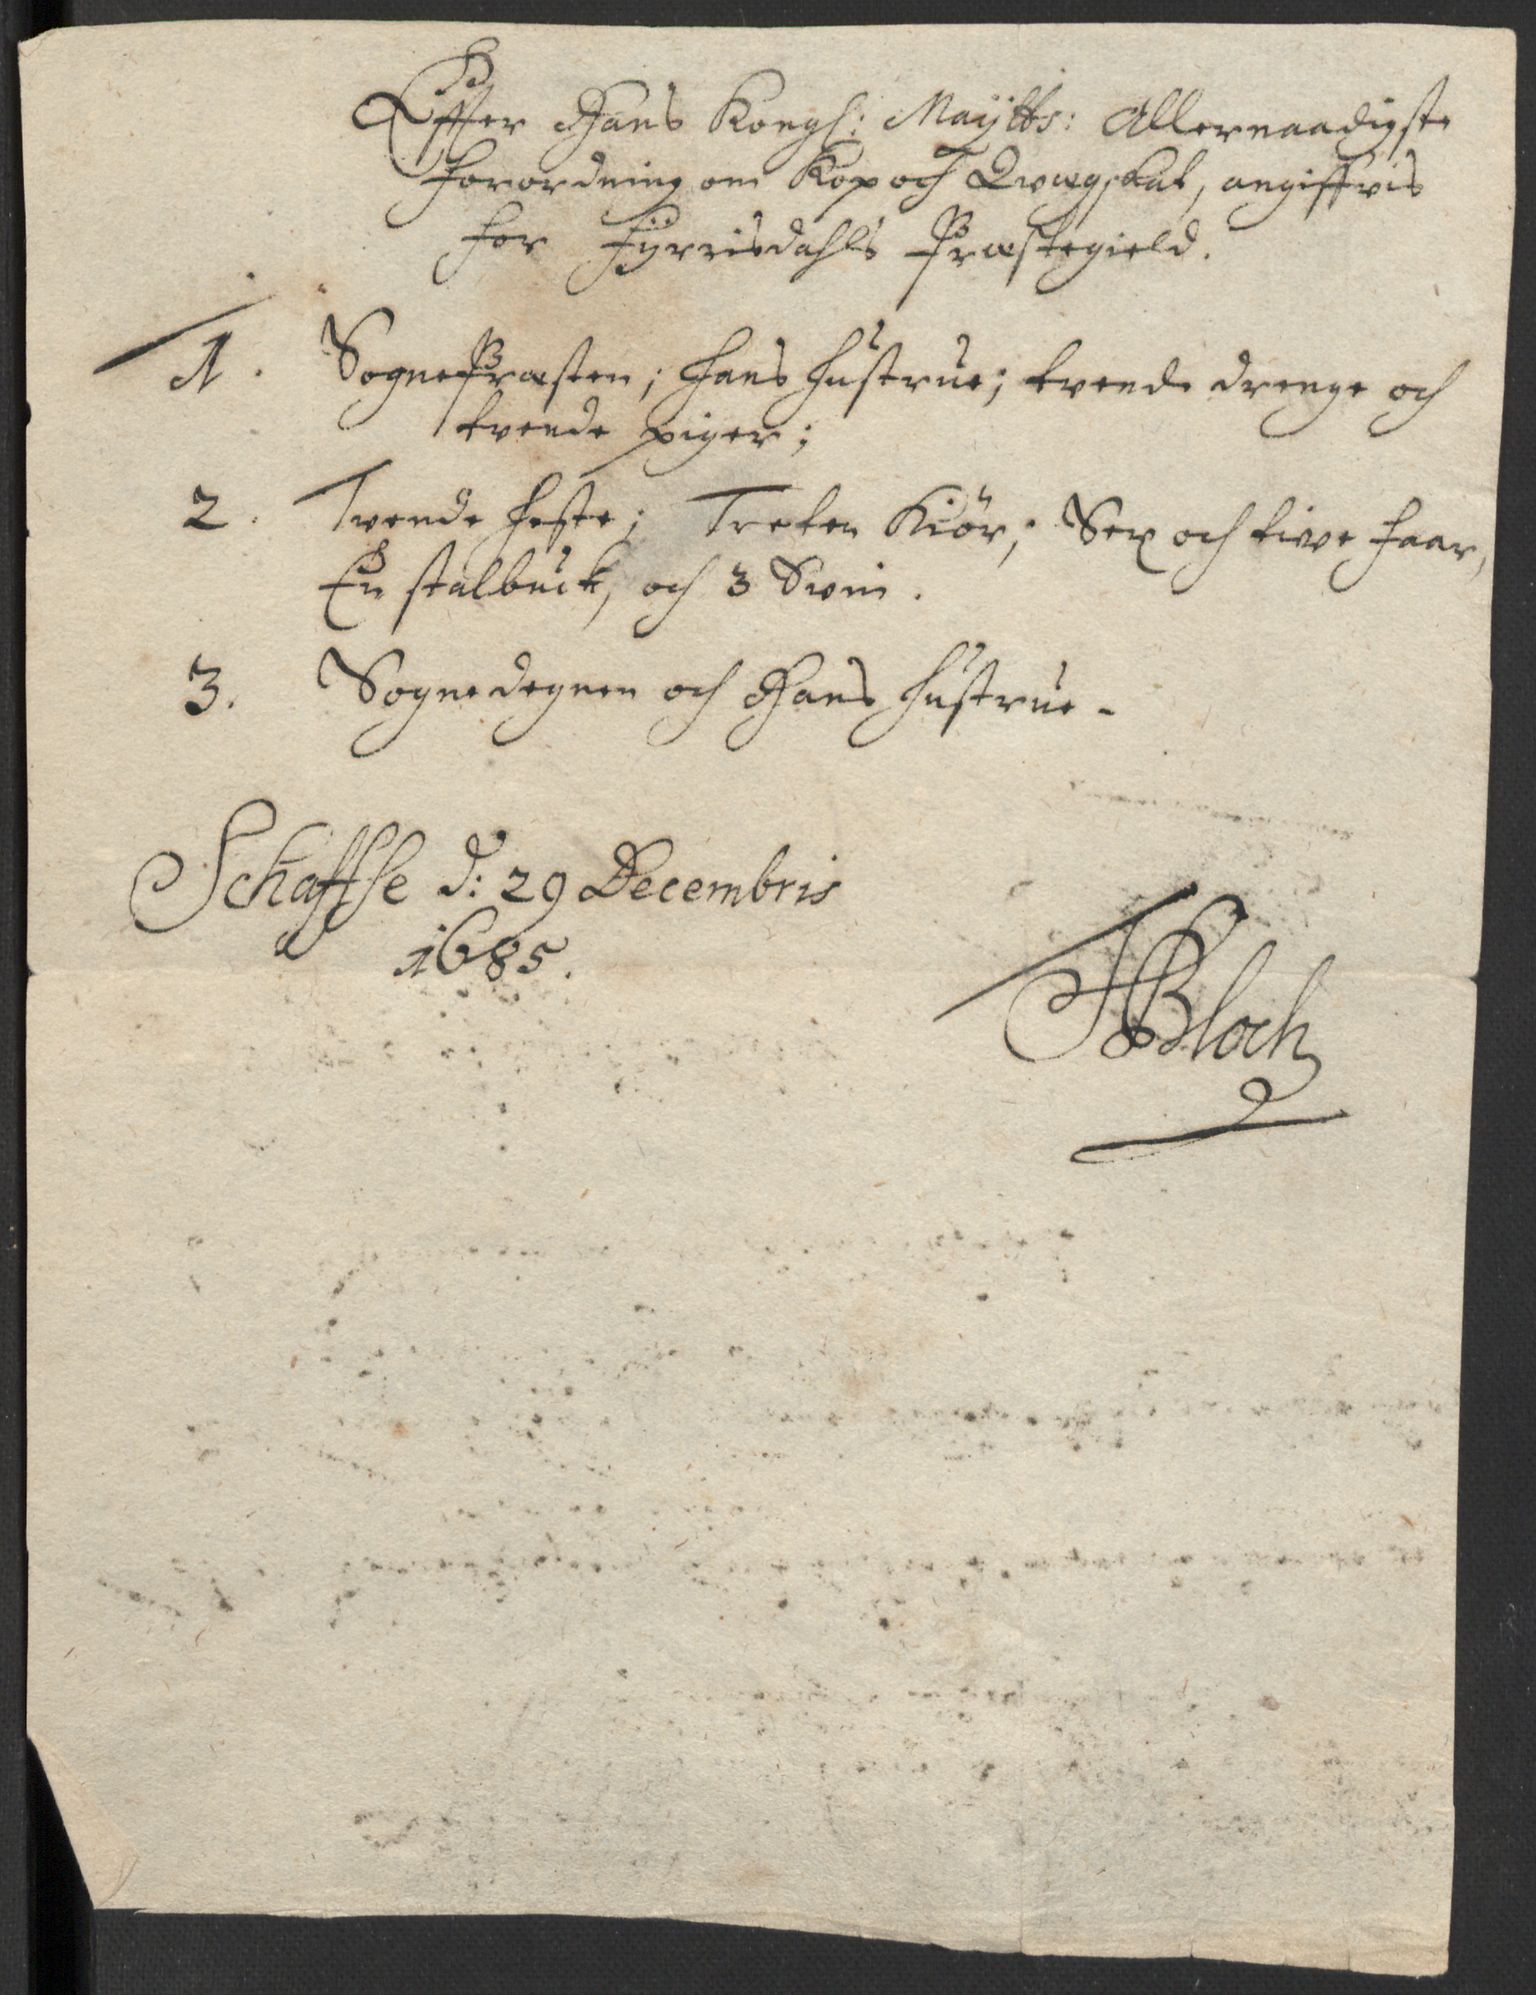 Effter Hans Kongl: Maÿtts: Allernaadigste
forordning om Kop och Qvægskat, angiffvis
for Fÿrrisdahls Præstegield.
1. SognePræsten; hans hustrue; tvende drenge och
tvende piger;
2. Tvende heste; Tretten Kiör; Sex och tive faar,
En stalbuck, och 3 Svin.
3. Sognedegnen och Hans hustrue-
Schaffse d: 29 Decembris
1685.
HBloch